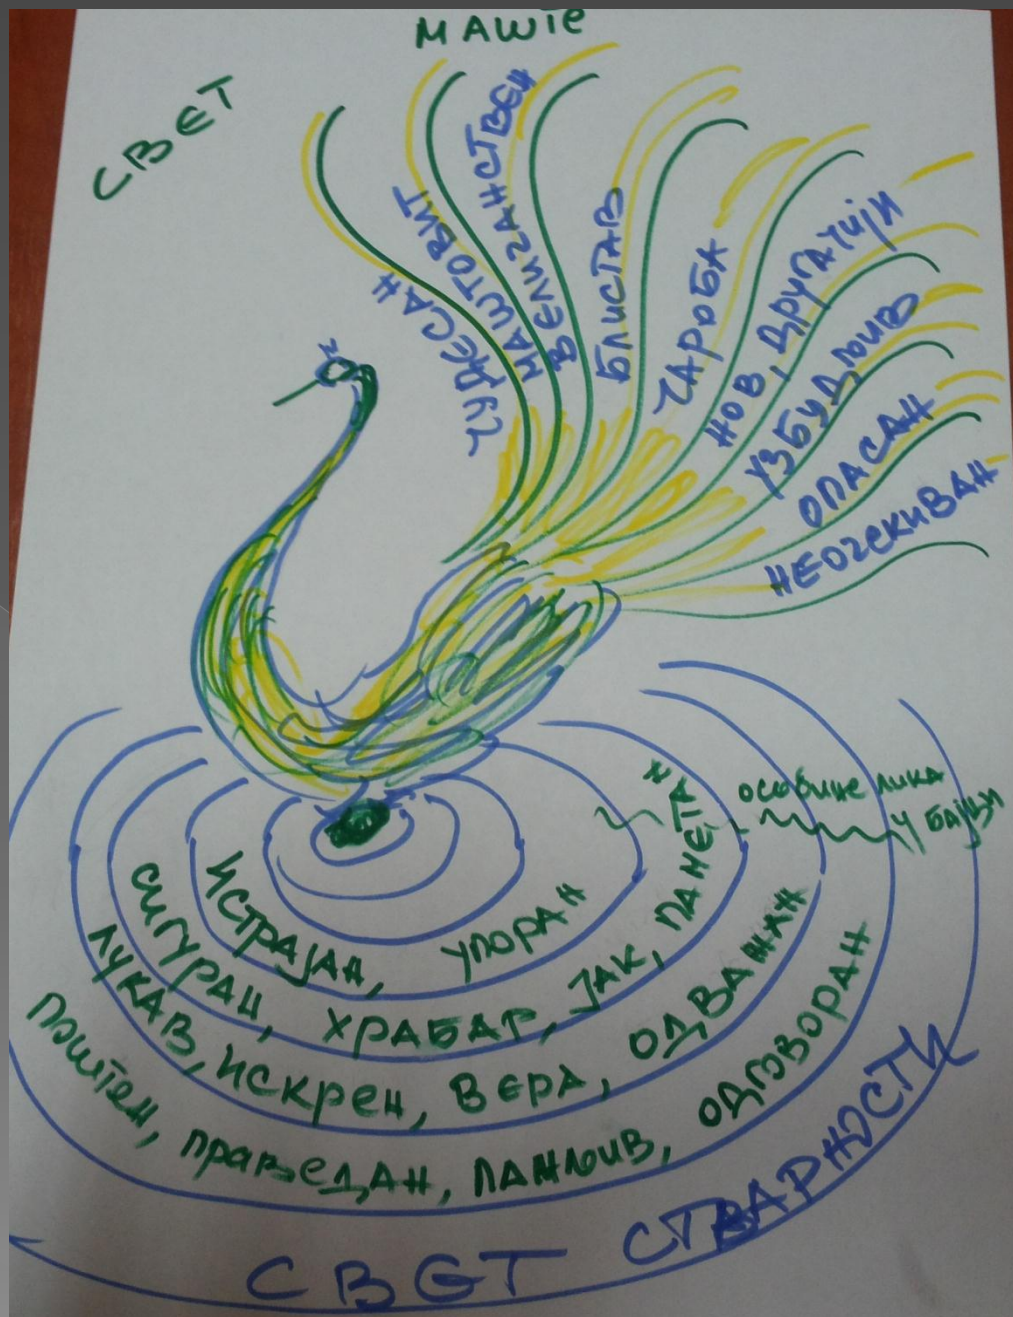 СВЕТ
МАШТЕ
ЧУДЕСАН
МАШТОВИТ
ВЕЛИЧАНСТВЕН
БЛИСТАВ
ЧАРОБАН
НОВ, ДРУГАЧИЈИ
УЗБУДЉИВ
ОПАСАН
НЕОЧЕКИВАН
особине лика
у бајци
ИСТРАЈАН, УПОРАН
СИГУРАН, ХРАБАР, ЈАК, ПАМЕТАН
ЛУКАВ, ИСКРЕН, ВЕРА, ОДВАЖАН
поштен, праведан, ПАЖЉИВ, ОДГОВОРАН
СВЕТ СТВАРНОСТИ